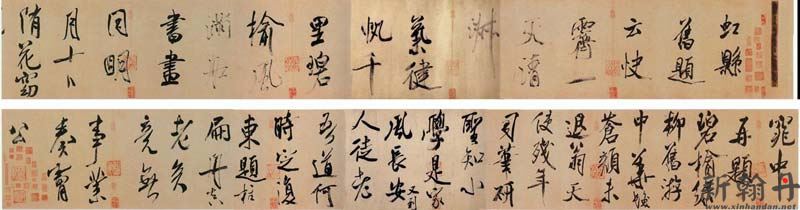 虹縣
舊題
云快
霽一
天清
淑
氣健
帆千
里碧
榆風
滿舡
書畫
同明
月十日
隨花窈
窕中
再題
碧榆綠
柳舊游
中華髮
蒼顏未
退翁天
使殘年
司筆研
聖知小
學是家
風長安又到
人徒老
吾道何
時定復
東題柱
扁舟真
老矣
竟無
事業
奏膚
公
新翰丹
www.xinhandan.net